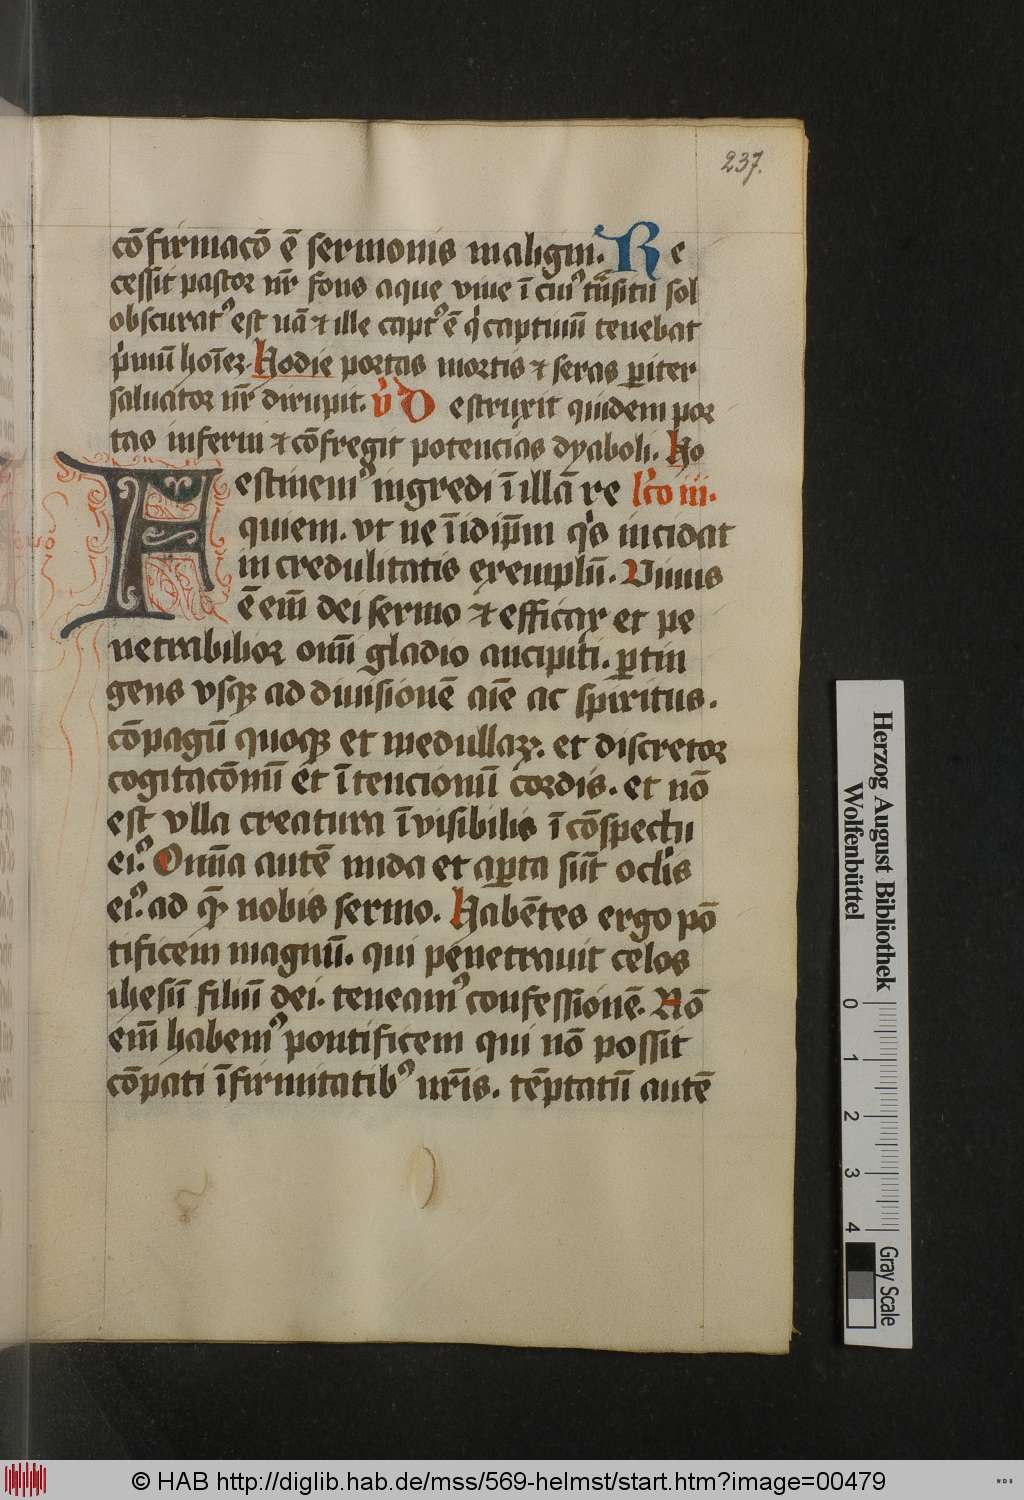 237.
cōfirmacō ē sermonis maligni. Re
cessit pastor nr̄ fons aque viue ī cuiꝰ trāsitu sol
obscuratꝰ est nā ⁊ ille captꝰ ē q̇ captiuū tenebat
p̍mū hoīeꝫ. Hodie portas mortis ⁊ seras ꝑiter
saluator nr̄ dirupit. v̄ Destruxit quidem por
tas inferni ⁊ cōfregit potencias dyaboli. Ho
Festinemꝰ ingredi ī illā re lc̄o iii.
quiem. vt ne ī idip̄m q̍s incidat
in credulitatis exemplū. Viuus
ē em̄ dei sermo ⁊ efficax et pe
netrabilior omī gladio ancipiti. ꝑtin
gens vsqꝫ ad diuisionē aīe ac spiritus.
cōpagū quoqꝫ et medullaꝝ. et discretor
cogitacōnū et ītencionū cordis. et nō
est vlla creatura īvisibilis ī cōspectu
eiꝰ. Omīa autē nuda et aꝑta sūt oclīs
eiꝰ. ad quē nobis sermo. Habētes ergo pō
tificem magnū. qui penetrauit celos
ihesū filiū dei. teneamꝰ confessionē. Nō
em̄ habemꝰ pontificem qui nō possit
cōpati īfirmitatibꝰ nr̄is. tēptatū autē
Herzog August Bibliothek
Wolfenbüttel
0 1 2 3 4
Gray Scale
© HAB http://diglib.hab.de/mss/569-helmst/start.htm?image=00479